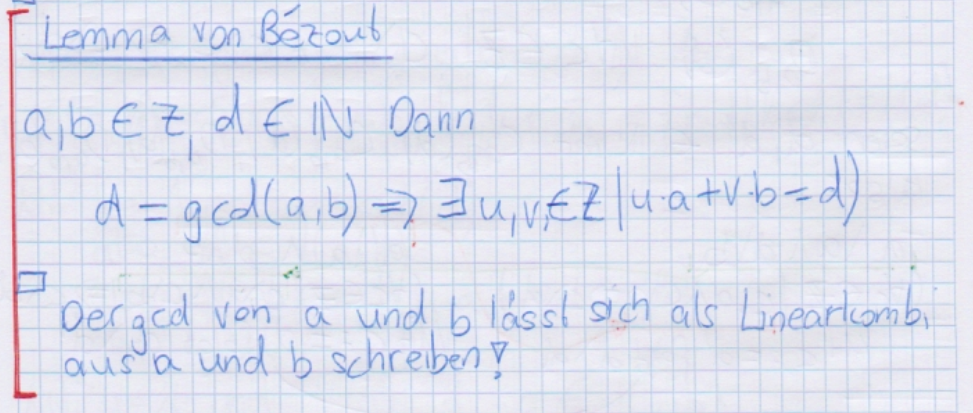 Lemma von Bézout
a,b ∈ Z, d ∈ ℕ Dann
d = gcd(a,b) => ∃ u,v,∈Z | u·a+v·b=d)
Der gcd von a und b lässt sich als Linearkomb.
aus a und b schreiben!